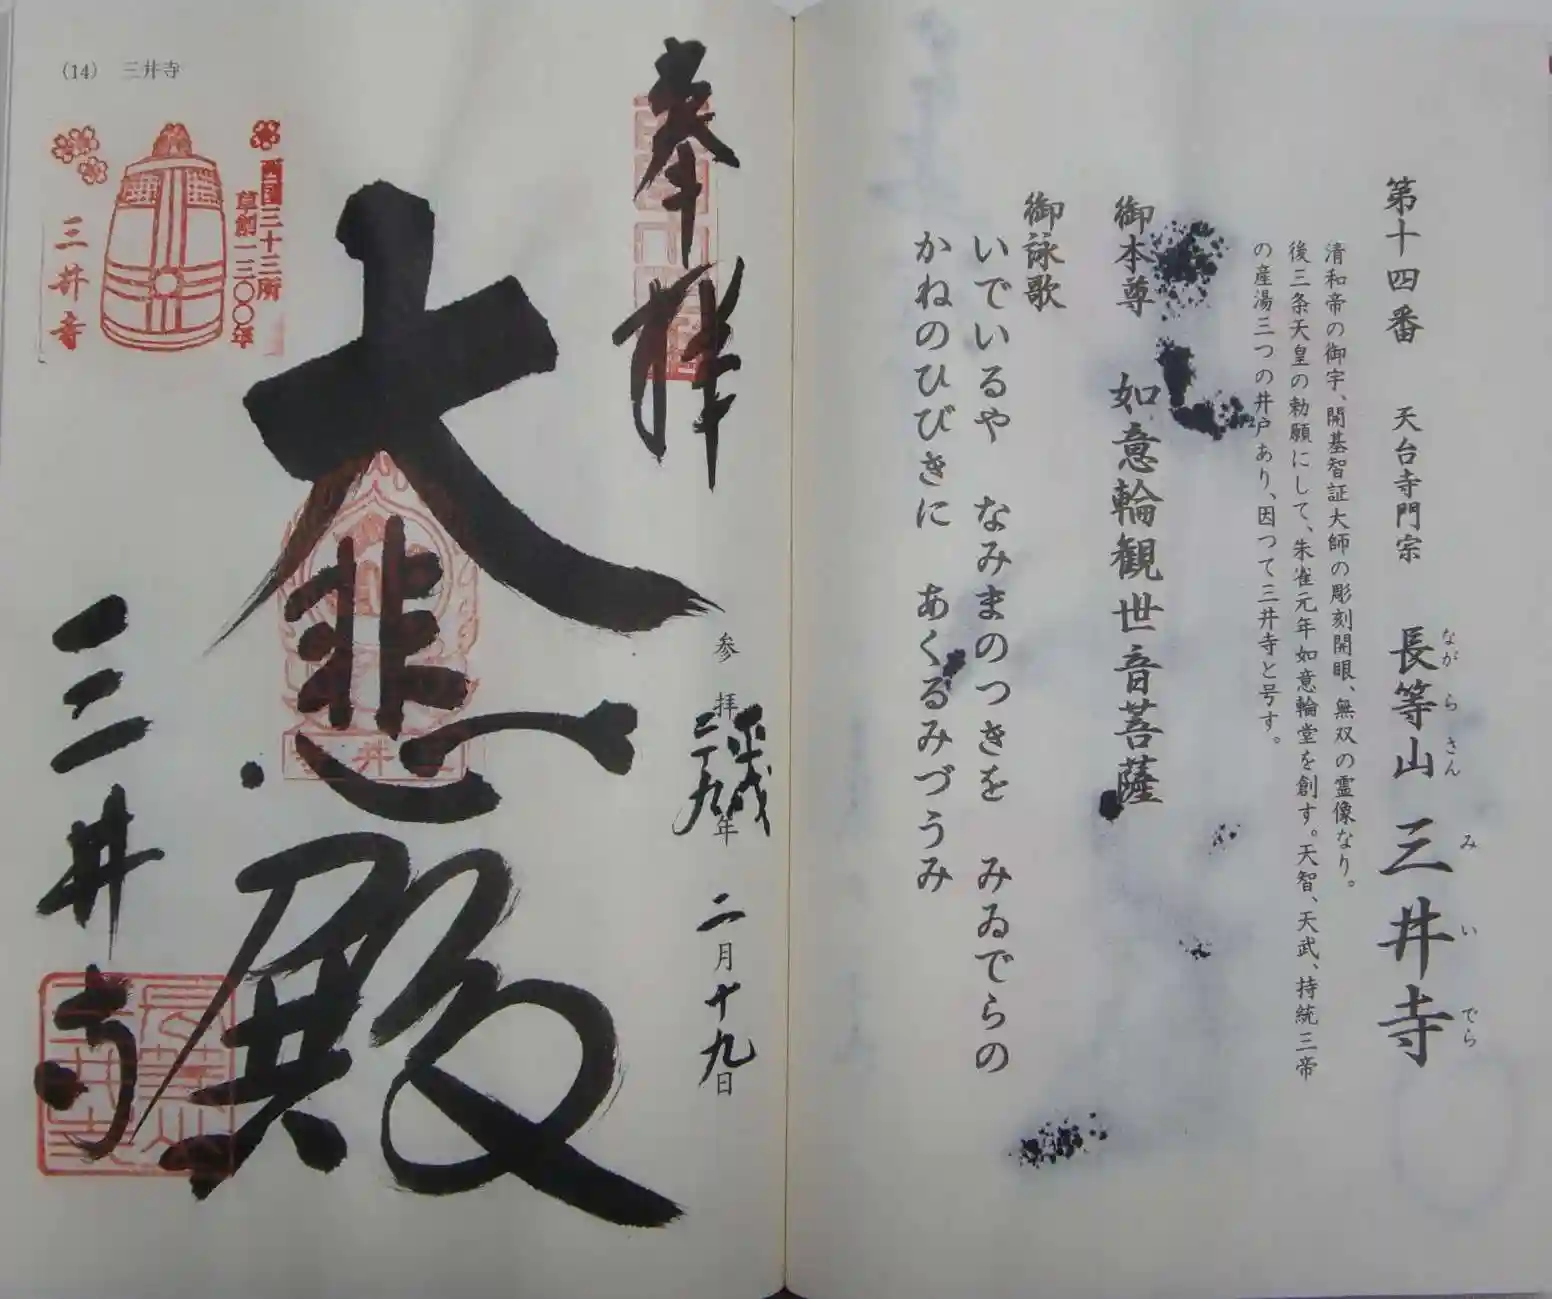 第十四番　天台寺門宗　長等山　三井寺
ながらさん　みいでら
清和帝の御宇、開基智証大師の彫刻開眼、無双の霊像なり。
後三条天皇の勅願にして、朱雀元年如意輪堂を創す。天智、天武、持統三帝
の産湯三つの井戸あり、因つて三井寺と号す。
御本尊　如意輪観世音菩薩
御詠歌
いでいるや　なみまのつきを　みゐでらの
かねのひびきに　あくるみづうみ
(14)　三井寺
奉拝
参拝
平成
二十九年　二月十九日
大悲殿
三井寺
西国三十三所
草創一三〇〇年
三井寺
三井寺
長等山
三井寺